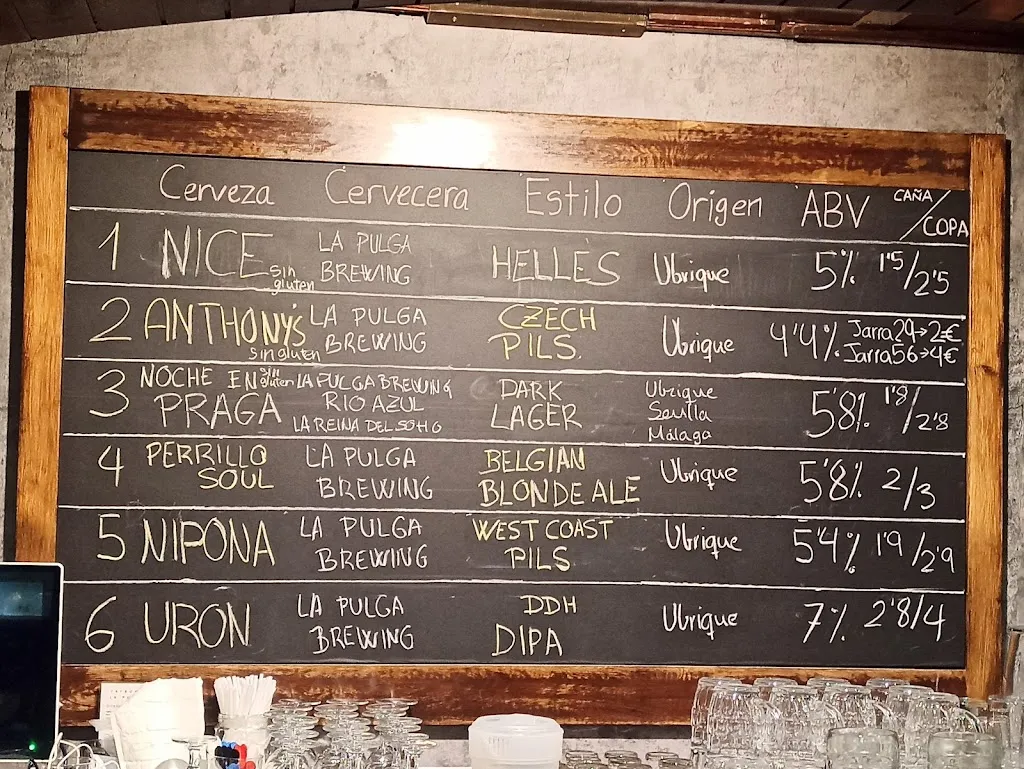 Cerveza Cervecera Estilo Origen ABV CAÑA/COPA
1 NICE sin gluten LA PULGA BREWING HELLES Ubrique 5% 1'5/2'5
2 ANTHONY'S sin gluten LA PULGA BREWING CZECH PILS. Ubrique 4'4% Jarra29→2€ Jarra56→4€
3 NOCHE EN PRAGA sin gluten LA PULGA BREWING RIO AZUL LA REINA DEL SOHO DARK LAGER Ubrique Sevilla Málaga 5'8% 1'8/2'8
4 PERRILLO SOUL LA PULGA BREWING BELGIAN BLONDE ALE Ubrique 5'8% 2/3
5 NIPONA LA PULGA BREWING WEST COAST PILS Ubrique 5'4% 1'9/2'9
6 URON LA PULGA BREWING DDH DIPA Ubrique 7% 2'8/4